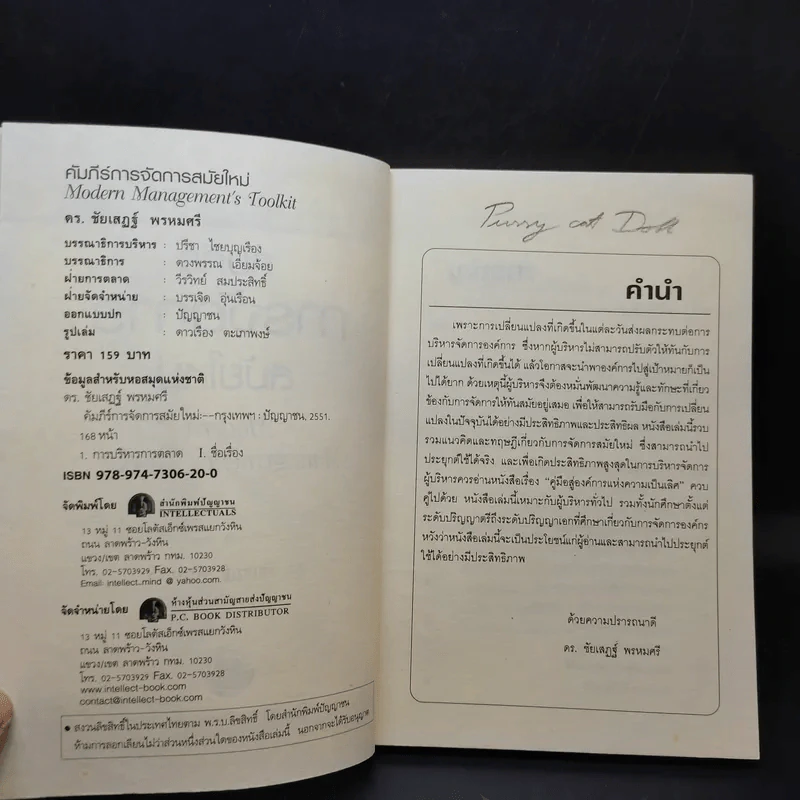 คัมภีร์การจัดการสมัยใหม่
Modern Management's Toolkit
ดร. ชัยเสฏฐ์ พรหมศรี
บรรณาธิการบริหาร : ปรีชา ไชยบุญเรือง
บรรณาธิการ : ดวงพรรณ เอี่ยมจ้อย
ฝ่ายการตลาด : วีรวิทย์ สมประสิทธิ์
ฝ่ายจัดจำหน่าย : บรรเจิด อุ่นเรือน
ออกแบบปก : ปัญญาชน
รูปเล่ม : ดาวเรือง ตะเภาพงษ์
ราคา 159 บาท
ข้อมูลสำหรับหอสมุดแห่งชาติ
ดร. ชัยเสฏฐ์ พรหมศรี
คัมภีร์การจัดการสมัยใหม่:--กรุงเทพฯ : ปัญญาชน, 2551.
168 หน้า
1. การบริหารการตลาด I. ชื่อเรื่อง
ISBN 978-974-7306-20-0
จัดพิมพ์โดย สำนักพิมพ์ปัญญาชน
INTELLECTUALS
13 หมู่ 11 ซอยโลตัสเอ็กซ์เพรสแยกวังหิน
ถนน ลาดพร้าว-วังหิน
แขวง/เขต ลาดพร้าว กทม. 10230
โทร. 02-5703929 Fax. 02-5703928
Email: intellect_mind @ yahoo.com.
จัดจำหน่ายโดย ห้างหุ้นส่วนสามัญสายส่งปัญญาชน
P.C. BOOK DISTRIBUTOR
13 หมู่ 11 ซอยโลตัสเอ็กซ์เพรสแยกวังหิน
ถนน ลาดพร้าว-วังหิน
แขวง/เขต ลาดพร้าว กทม. 10230
โทร. 02-5703929 Fax. 02-5703928
www.intellect-book.com
contact@intellect-book.com
• สงวนลิขสิทธิ์ในประเทศไทยตาม พ.ร.บ.ลิขสิทธิ์ โดยสำนักพิมพ์ปัญญาชน
ห้ามการลอกเลียนไม่ว่าส่วนหนึ่งส่วนใดของหนังสือเล่มนี้ นอกจากจะได้รับอนุญาต
Pussy cat Doll
คำนำ
เพราะการเปลี่ยนแปลงที่เกิดขึ้นในแต่ละวันส่งผลกระทบต่อการ
บริหารจัดการองค์การ ซึ่งหากผู้บริหารไม่สามารถปรับตัวให้ทันกับการ
เปลี่ยนแปลงที่เกิดขึ้นได้ แล้วโอกาสจะนำพาองค์การไปสู่เป้าหมายก็เป็น
ไปได้ยาก ด้วยเหตุนี้ผู้บริหารจึงต้องหมั่นพัฒนาความรู้และทักษะที่เกี่ยว
ข้องกับการจัดการให้ทันสมัยอยู่เสมอ เพื่อให้สามารถรับมือกับการเปลี่ยน
แปลงในปัจจุบันได้อย่างมีประสิทธิภาพและประสิทธิผล หนังสือเล่มนี้รวบ
รวมแนวคิดและทฤษฎีเกี่ยวกับการจัดการสมัยใหม่ ซึ่งสามารถนำไป
ประยุกต์ใช้ได้จริง และเพื่อเกิดประสิทธิภาพสูงสุดในการบริหารจัดการ
ผู้บริหารควรอ่านหนังสือเรื่อง "คู่มือสู่องค์การแห่งความเป็นเลิศ" ควบ
คู่ไปด้วย หนังสือเล่มนี้เหมาะกับผู้บริหารทั่วไป รวมทั้งนักศึกษาตั้งแต่
ระดับปริญญาตรีถึงระดับปริญญาเอกที่ศึกษาเกี่ยวกับการจัดการองค์กร
หวังว่าหนังสือเล่มนี้จะเป็นประโยชน์แก่ผู้อ่านและสามารถนำไปประยุกต์
ใช้ได้อย่างมีประสิทธิภาพ
ด้วยความปรารถนาดี
ดร. ชัยเสฏฐ์ พรหมศรี